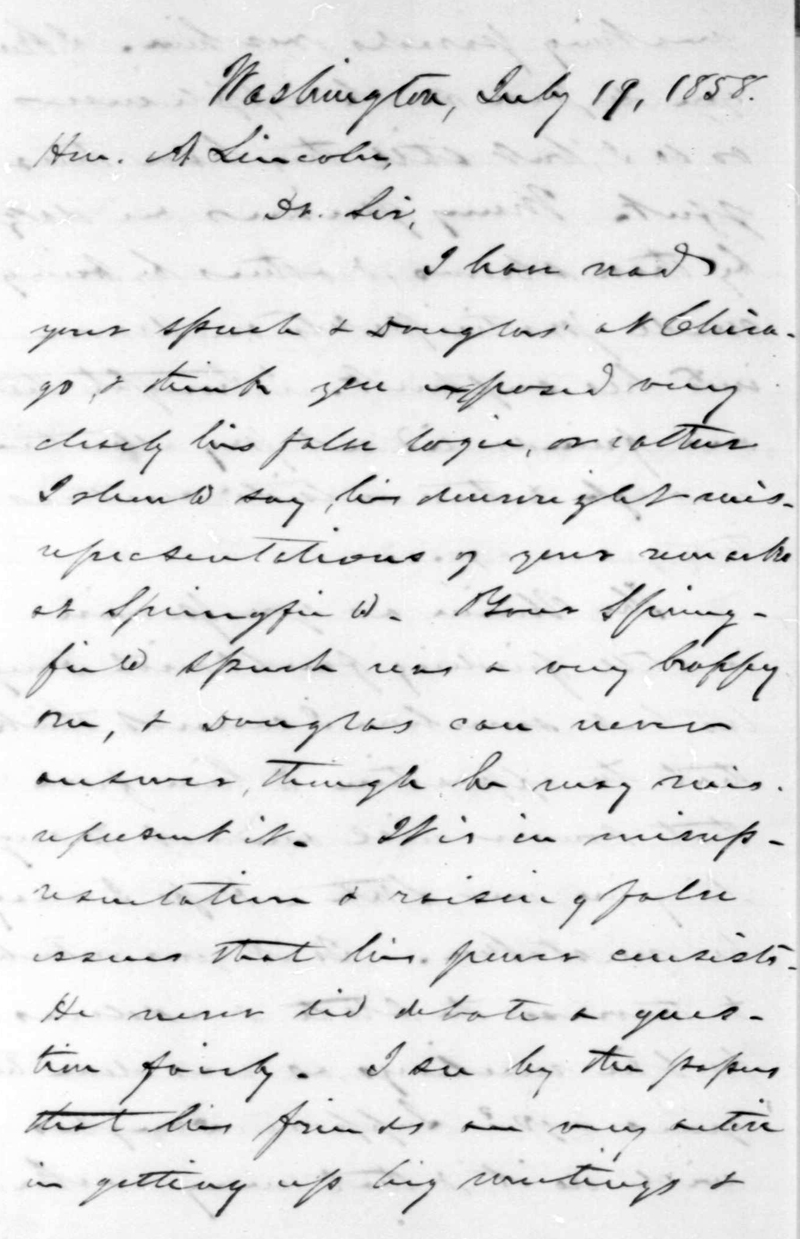 Washington, July 19, 1858.
Hon. A Lincoln,
Dr. Sir,
I have read
your speech & Douglas' at Chica-
go, & think you exposed very
clearly his false logic, or rather
I should say, his downright mis-
representations of your remarks
at Springfield. Your Spring-
field speech was a very happy
one, & Douglas can never
answer, though he may mis-
represent it. It is in misrep-
resentation & raising false
issues that his power consists.
He never did debate a ques-
tion fairly. I see by the papers
that his friends are very active
in getting up big meetings &